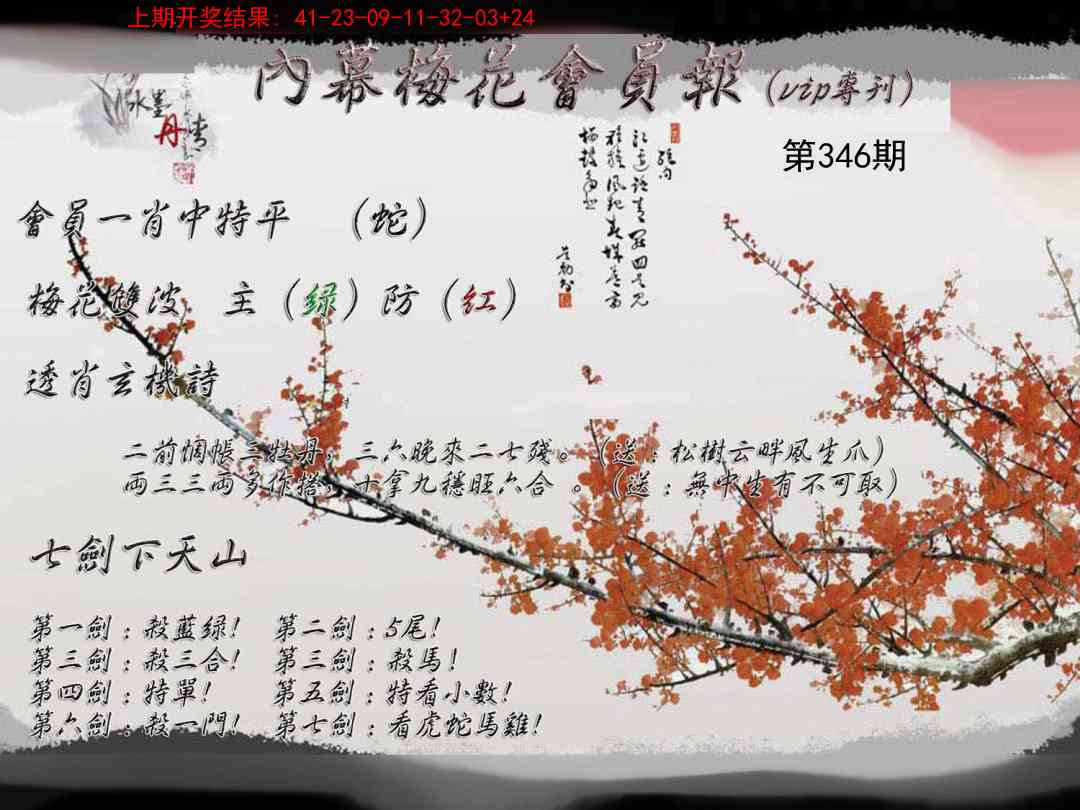 上期开奖结果: 41-23-09-11-32-03+24
內幕梅花會員報（vip專刊）
水墨
丹青
第346期
會員一肖中特平 （蛇）
梅花雙波 主（绿）防（红）
透肖玄機詩
二前惆悵三牡丹，三六晚來二七殘。（送：松樹云畔風生爪）
両三三両多作搭，十拿九穩旺六合 。（送：無中生有不可取）
七劍下天山
第一劍：殺藍绿! 第二劍：5尾!
第三劍：殺三合! 第三劍：殺馬!
第四劍：特單! 第五劍：特看小數!
第六劍：殺一門! 第七劍：看虎蛇馬雞!